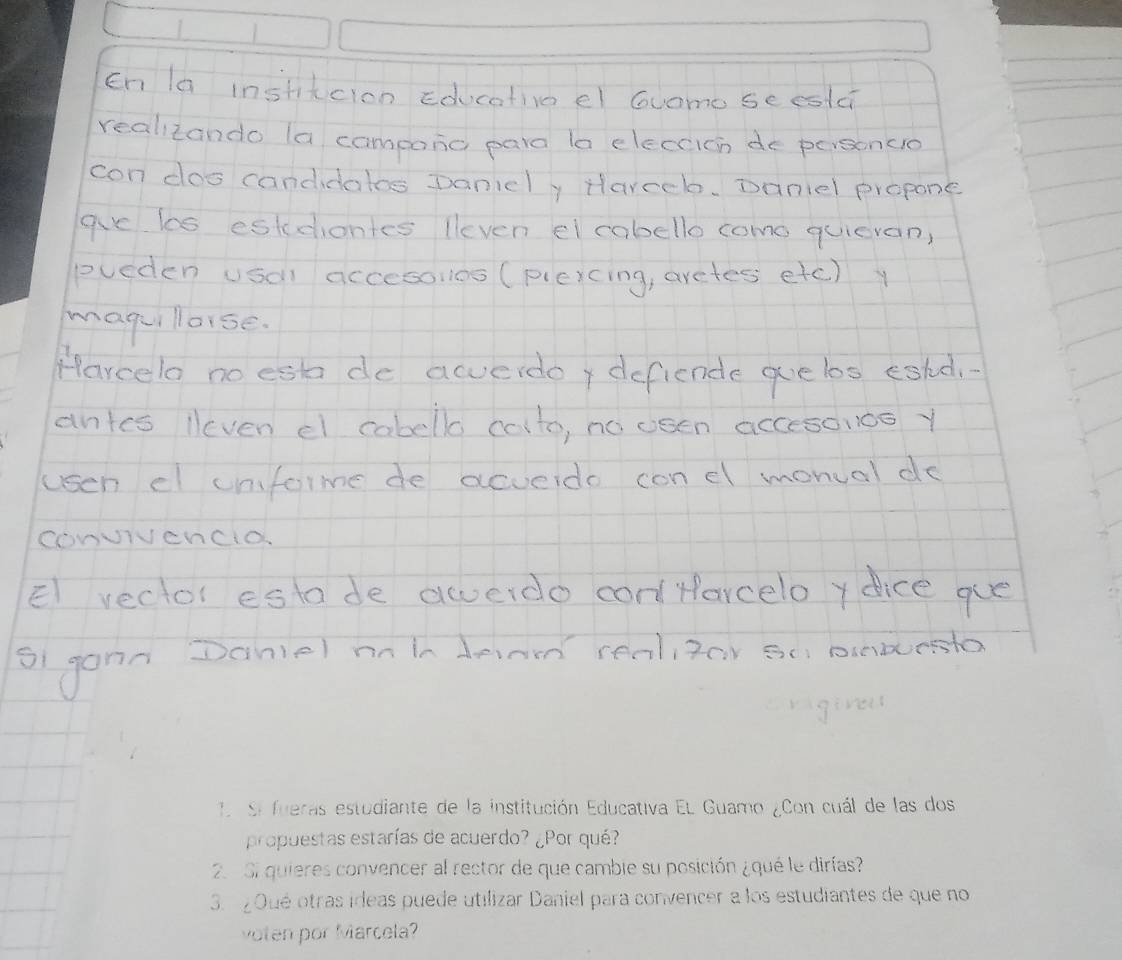 En la institucion Educativa el Guamo se está
realizando la campaña para la elección de personero
con dos candidatos Daniel y Marcela. Daniel propone
que los estudiantes lleven el cabello como quieran,
pueden usar accesorios (piercing, aretes etc) y
maquillarse.
Marcela no esta de acuerdo y defiende que los estudi-
antes lleven el cabello corto, no usen accesorios y
usen el uniforme de acuerdo con el manual de
convivencia.
El rector esta de acuerdo con Marcela y dice que
si gana Daniel no lo dejará realizar su propuesta
1. Si fueras estudiante de la institución Educativa EL Guamo ¿Con cuál de las dos
propuestas estarías de acuerdo? ¿Por qué?
2. Si quieres convencer al rector de que cambie su posición ¿qué le dirías?
3. ¿Qué otras ideas puede utilizar Daniel para convencer a los estudiantes de que no
voten por Marcela?